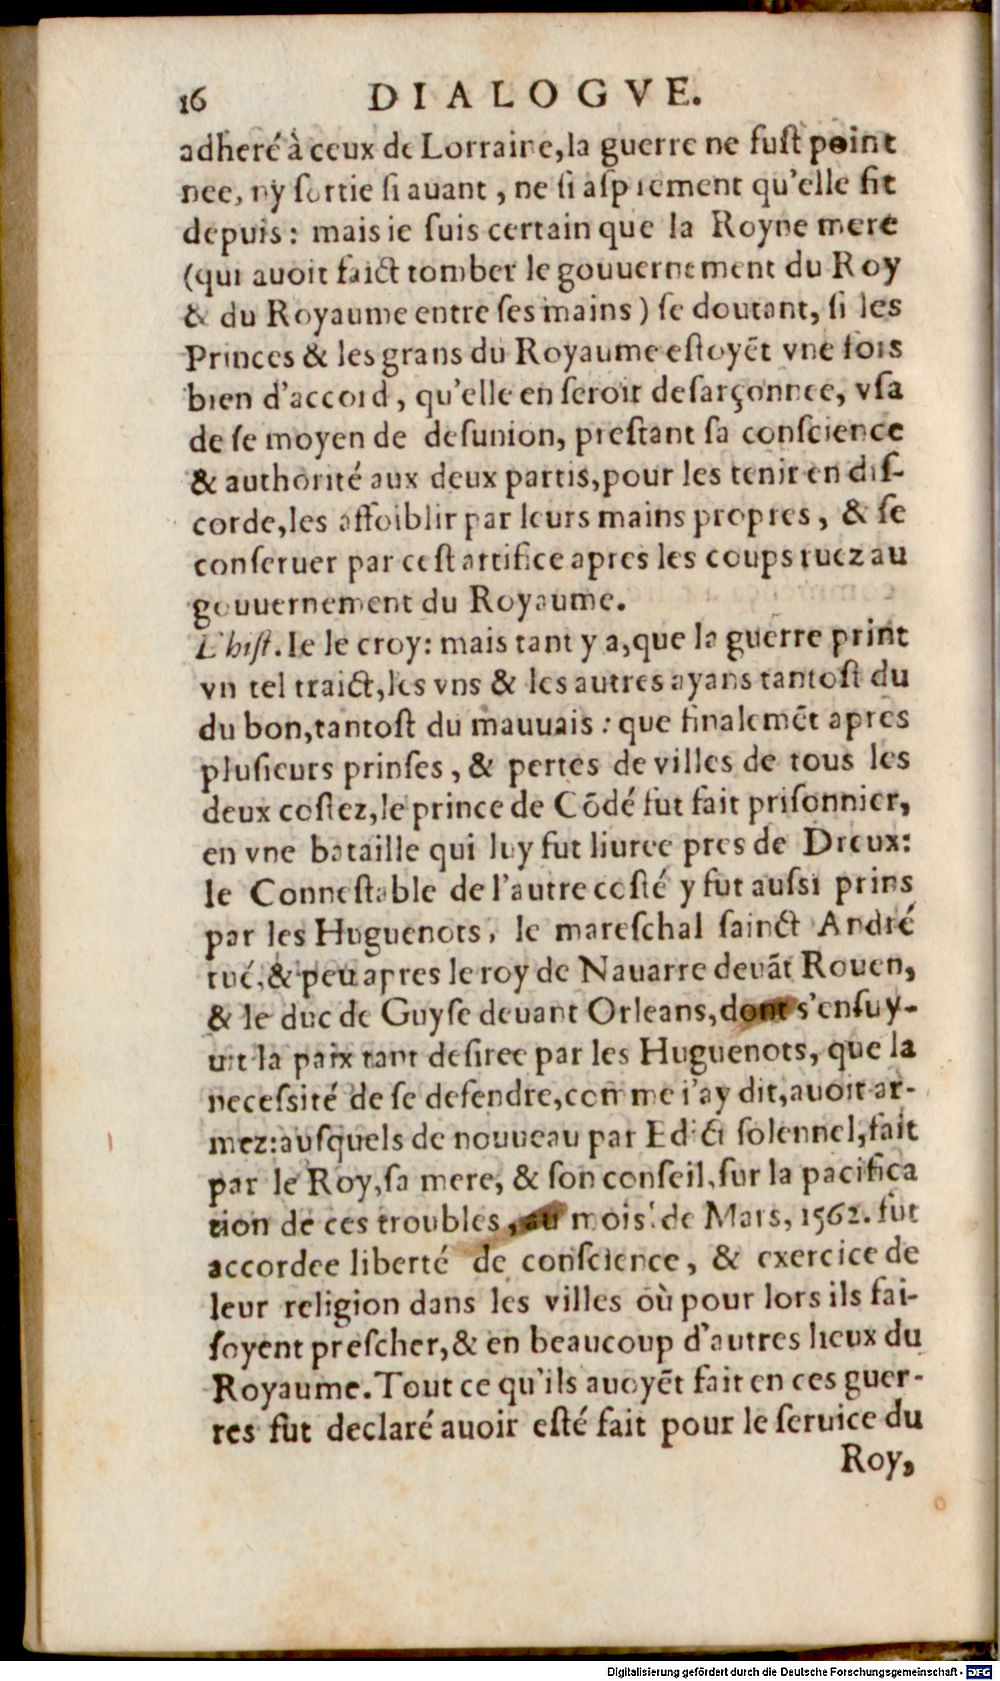 16 DIALOGVE.
adheré à ceux de Lorraine,la guerre ne fuſt point
nee, ny ſortie ſi auant, ne ſi aſprement qu'elle fit
depuis: mais ie ſuis certain que la Royne mere
(qui auoit faict tomber le gouuernement du Roy
& du Royaume entre ſes mains) ſe doutant, ſi les
Princes & les grans du Royaume eſtoyẽt vne fois
bien d'accord, qu'elle en ſeroit deſarçonnee, vſa
de ſe moyen de deſunion, preſtant ſa conſcience
& authorité aux deux partis,pour les tenir en diſ-
corde,les affoiblir par leurs mains propres, & ſe
conſeruer par ceſt artifice apres les coups ruez au
gouuernement du Royaume.
L'hiſt. Ie le croy: mais tant y a,que la guerre print
vn tel traict,les vns & les autres ayans tantoſt du
du bon,tantoſt du mauuais: que finalemẽt apres
pluſieurs prinſes, & pertes de villes de tous les
deux coſtez,le prince de Cõdé fut fait priſonnier,
en vne bataille qui luy fut liuree pres de Dreux:
le Conneſtable de l'autre coſté y fut auſſi prins
par les Huguenots, le mareſchal ſainct André
tué,& peu apres le roy de Nauarre deuãt Rouen,
& le duc de Guyſe deuant Orleans,dont s'enſuy-
uit la paix tant deſiree par les Huguenots, que la
neceſſité de ſe defendre,comme i'ay dit,auoit ar-
mez:auſquels de nouueau par Edict ſolennel,fait
par le Roy,ſa mere, & ſon conſeil,ſur la pacifica
tion de ces troubles, au mois de Mars, 1562. fut
accordee liberté de conſcience, & exercice de
leur religion dans les villes où pour lors ils fai-
ſoyent preſcher,& en beaucoup d'autres lieux du
Royaume.Tout ce qu'ils auoyẽt fait en ces guer-
res fut declaré auoir eſté fait pour le ſeruice du
Roy,
Digitalisierung gefördert durch die Deutsche Forschungsgemeinschaft - DFG